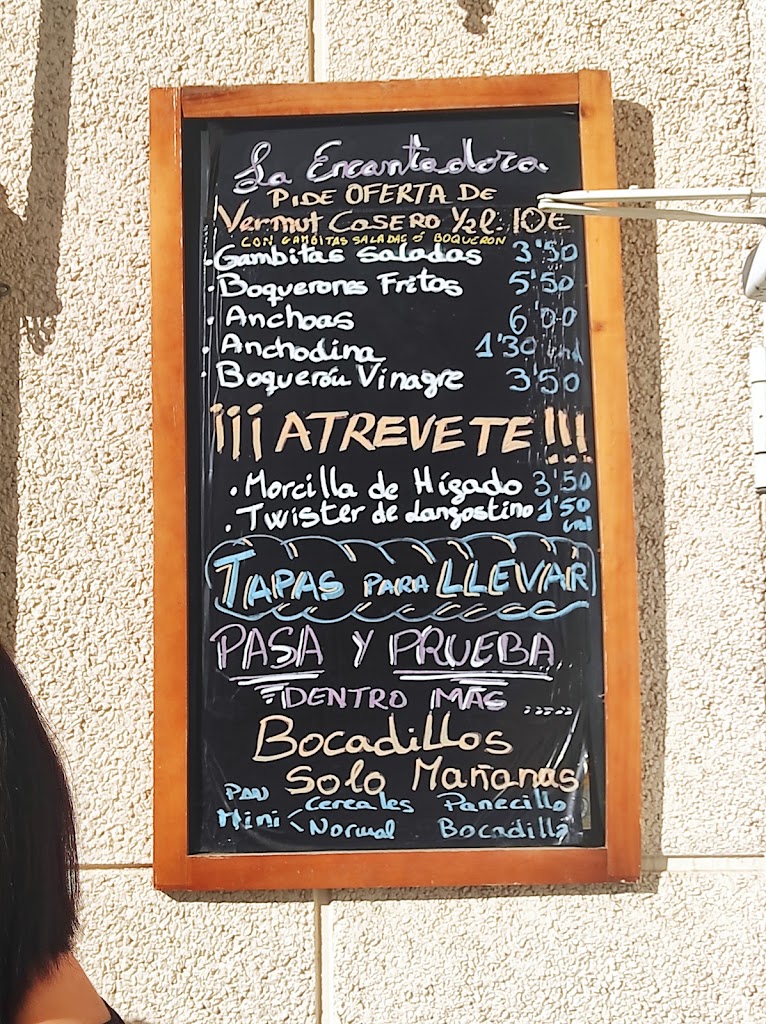 La Encantadora
PIDE OFERTA DE
Vermut CASERO 1/2 l. 10€
CON GAMBITAS SALADAS ó BOQUERON
• Gambitas Saladas 3'50
• Boquerones Fritos 5'50
• Anchoas 6'00
• Anchodina 1'30 und
• Boquerón Vinagre 3'50
¡¡¡ATREVETE!!!
• Morcilla de Hígado 3'50
• Twister de Langostino 1'50
und
TAPAS PARA LLEVAR
PASA Y PRUEBA...
DENTRO MAS ......
Bocadillos
Solo Mañanas
PAN Cereales Panecillo
Mini < Normal Bocadilla